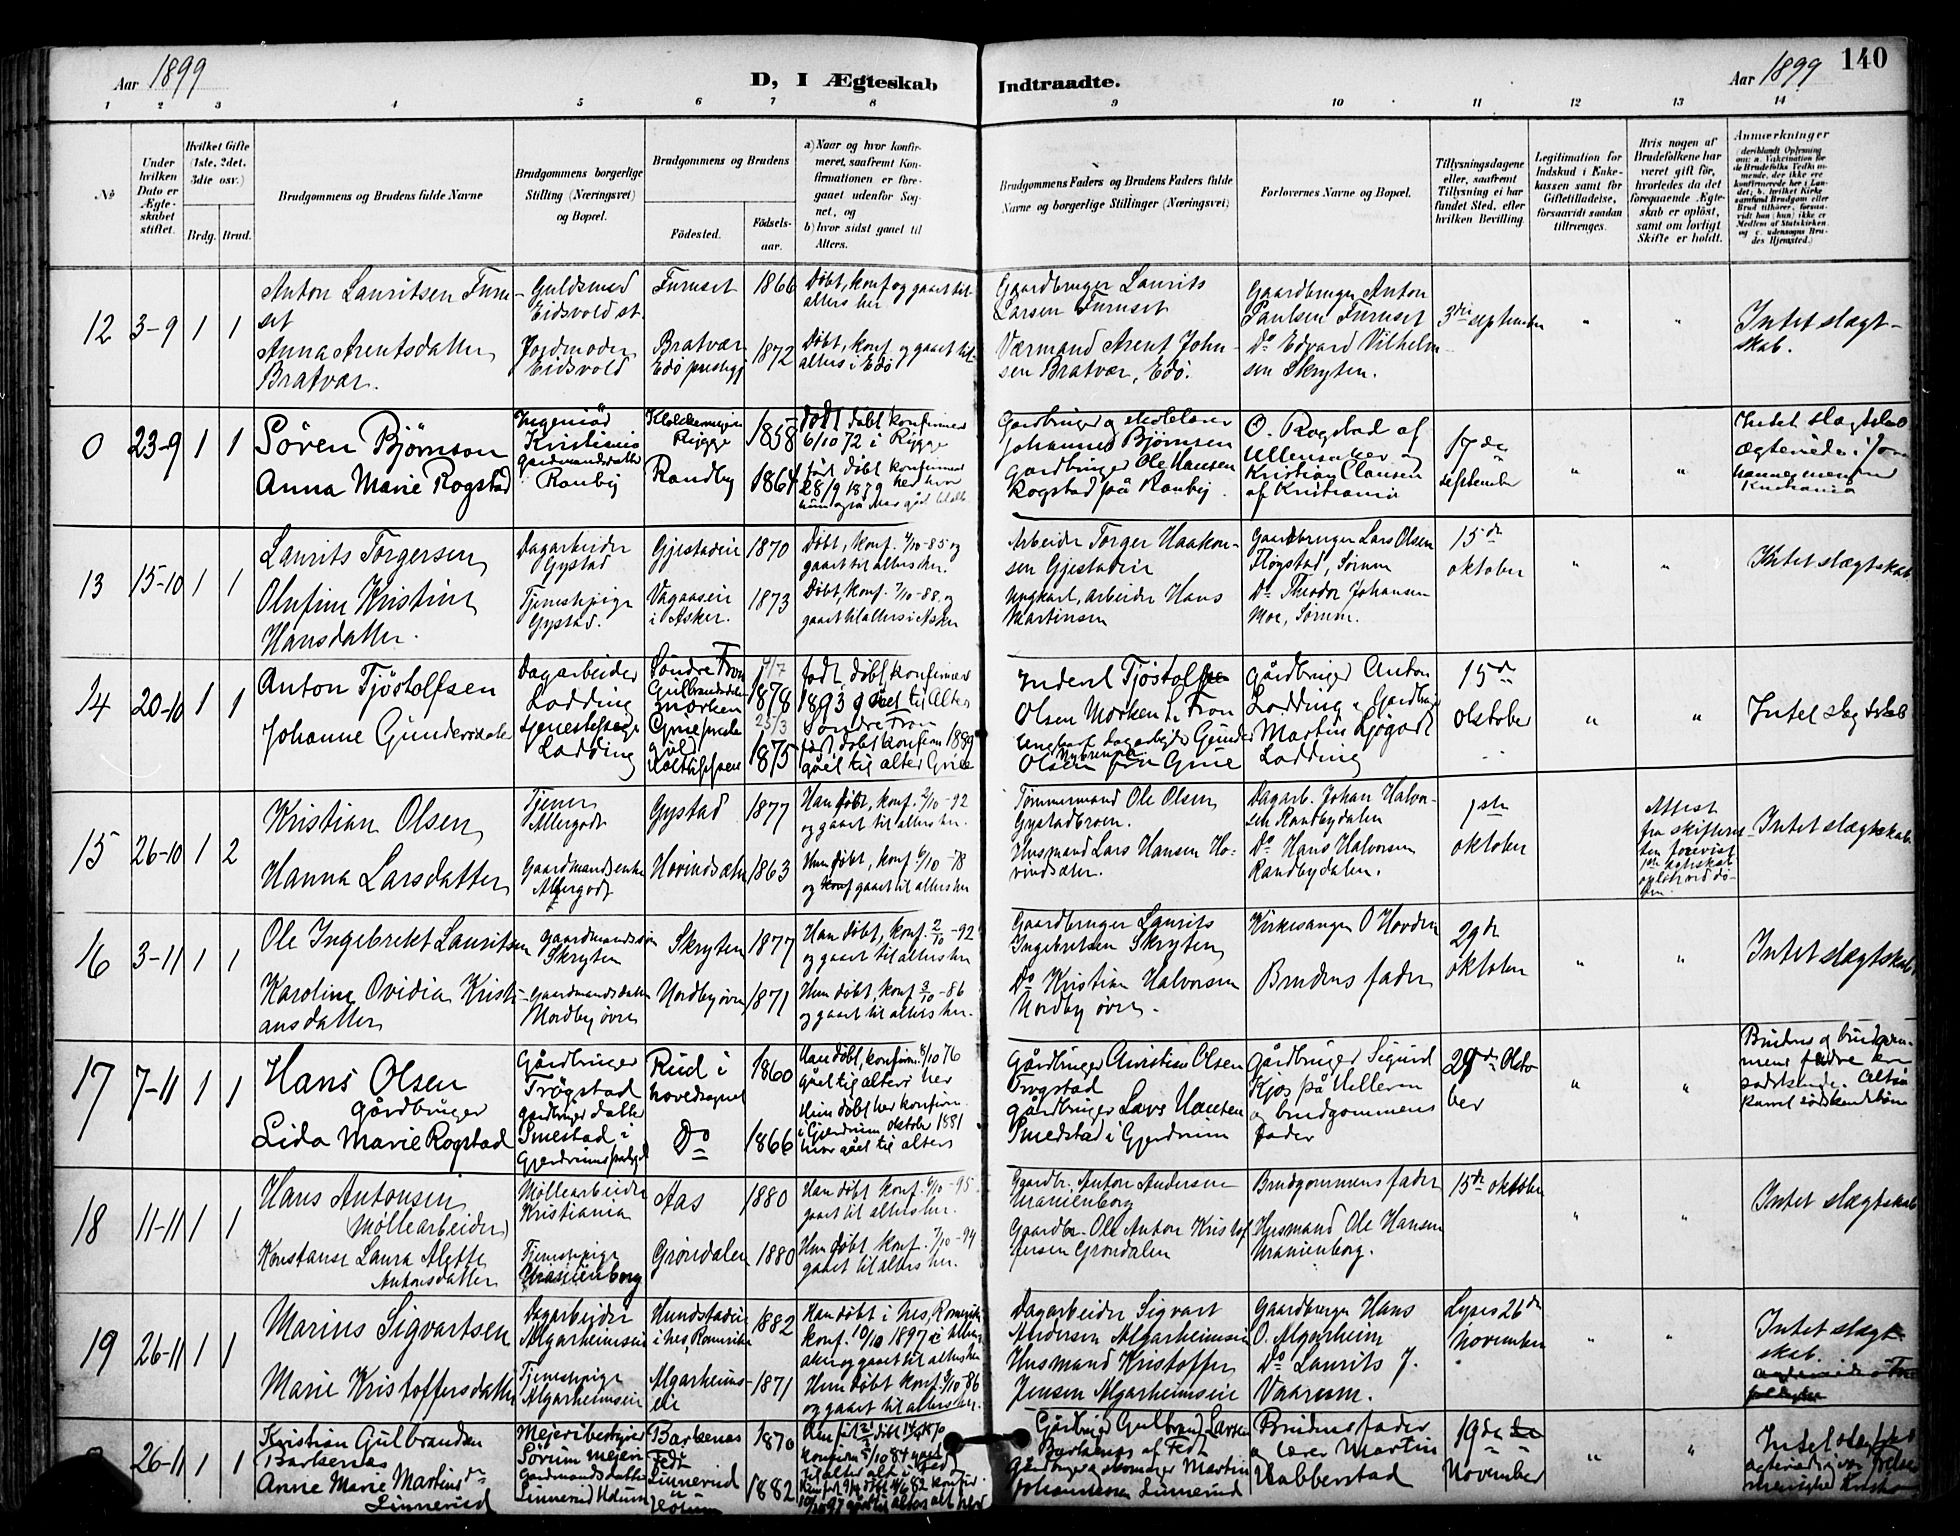 Aar 1899
D, I Ægteskab Indtraadte.
Aar 1899
140
1 2 3 4 5 6 7 8 9 10 11 12 13 14
№
Under hvilken Dato er Ægteskabet stiftet.
Hvilket Gifte (1ste, 2det, 3die osv.)
Brdg. Brud.
Brudgommens og Brudens fulde Navne
Brudgommens borgerlige Stilling (Næringsvei) og Bopæl.
Brudgommens og Brudens
Fødested.
Fødselsaar.
a) Naar og hvor konfirmeret, saafremt Konfirmationen er foregaaet udenfor Sognet, og
b) hvor sidst gaaet til Alters.
Brudgommens Faders og Brudens Faders fulde Navne og borgerlige Stillinger (Næringsvei)
Forlovernes Navne og Bopæl.
Tillysningsdagene eller, saafremt Tillysning ei har fundet Sted, efter hvilken Bevilling.
Legitimation for Indskud i Enkekassen samt for Giftetilladelse, forsaavidt saadan tiltrænges.
Hvis nogen af Brudefolkene har været gift før, hvorledes da det foregaaende Ægteskab er opløst, samt om lovligt Skifte er holdt.
Anmærkninger
12 3-9 1 1
Anton Lauritsen Furuset
Guldsmed Eidsvold st.
Furuset 1866
Døbt, konf og gaaet til alters her
Gaardbruger Laurits Larsen Furuset
Gaardbruger Anton Paulsen Furuset
3die september
Intet slægtskab.
Anna Arentsdatter Bratvær.
Jordmoder Eidsvold
Bratvær Edø prestegj 1872
Døbt, konf. og gaaet til alters i Edø
Værmand Arent Johnsen Bratvær, Edø.
Do Edvard Vilhelmsen Skryten.
0 23-9 1 1
Søren Bjørnson
Ingeniør Kristiania
Rygge 1858
født døbt konfirmer 6/10 72 i Rygge
Gårdbruger og
Johannes Bjørnsen
O. Rogstad af Ullensaker og Kristian Clausen af Kristiania
17de september
Intet slægtskab
Anna Marie Rogstad
gårdmandsdatter Ranby
Randby 1864
født døbt konfirmeret 28/9 1879 her
Gårdbruger Ole Hansen Rogstad på Ranby.
13 15-10 1 1
Laurits Torgersen
Dagarbeider Gystad
Gjestadeie 1870
Døbt, konf. 4/10-85 og gaaet til alters her.
Arbeider Torger Haakonsen Gjestadeie
Gaardbruger Lars Olsen Fløgstad, Sørum
15de oktober
Intet slægtskab
Olufine Kristine Hansdatter.
Tjenestepige Gystad.
i Asker. 1873
Døbt, konf. 7/10-88 og gaaet til alters i Asker
Ungkarl, arbeider Hans Martinsen
Do Theodor Johansen Moe, Sørum.
14 20-10 1 1
Anton Tjöstolfsen
Dagarbeider Lodding
Söndre Fron Gulbrandsdalen 17/7 1878
født, døbt, konfirmer 1893 til Alter Söndre Fron
Inderst Tjöstolf Olsen Morken S. Fron
Gårdbruger Anton Lodding
15de Oktober
Intet slegtskab
Johanne Gundersdatter
Tjenestepige Lodding
Grue 25/3 1875
født døbt konfirm 1889 gået til alter Grue
Ungkarl Dagarbejder Gunder Olsen fra Grue
Martin Lodding
15 26-10 1 2
Kristian Olsen
Tjener Allergodt
Gystad 1877
Han døbt, konf. 2/10-92 og gaaet til alters her.
Tømmermand Ole Olsen Gystadbroen.
Dagarb. Johan Halvorsen Randbydalen
1ste oktober
Attest fra skifteretten forevist
Intet slægtskab
Hanna Larsdatter
Gaardmandsenke Algergodt
Hovindsæter 1863
Hun døbt, konf 6/10-78 og gaaet til alters her
Husmand Lars Hansen Hovindsæter.
Do Hans Halvorsen Randbydalen.
16 3-11 1 1
Ole Ingebrekt Lauritsen
gaardmandssøn Skryten
Skryten 1877
Han døbt, konf. 2/10-92 og gaaet til alters her
Gaardbruger Laurits Ingebretsen Skryten
Kirkesanger O Hovden
29de oktober
Intet slægtskab
Karoline Ovidia Kristiansdatter
gaardmandsdatter Nordby øvre
Nordby øvre 1871
Hun døbt, konf 3/10-86 og gaaet til alters her.
Do Kristian Halvorsen Nordby øvre.
Brudens fader
17 7-11 1 1
Hans Olsen gårdbruger
Gårdbruger Trögstad
Rud i hovedsognet 1860
Han døbt, konfirm. 8/10 76 gået til alters her
Gårdbruger Christian Olsen Trogstad
Gårdbruger Sigurd Kjos på Helleren og brudgommens fader
29de Oktober
Brudens og brudgommens fædre
Lida Marie Rogstad
gårdbruger datter Smestad i Gjerdrums
Do 1866
Hun døbt her konfirm. i Gjerdrum oktober 1881 hvor gået til alters
gårdbruger Lars Hansen Smedstad i Gjerdrum
18 11-11 1 1
Hans Antonsen (Møllearbeider)
Møllearbeider Kristiania
Aas 1880
Han døbt konf. 6/10-95. gaaet til alters her.
Gaardbr. Anton Andersen Uranienborg
Brudgommens fader
15de oktober
Intet slægtskab
Konstanse Laura Alette Antonsdatter
Tjenestepige Uranienborg
Grøndalen 1880
Hun døbt konf. 7/10-94 gaaet til alters her.
Gaardbr. Ole Anton Kristoffersen Grøndalen
Husmand Ole Hansen Uranienborg.
19 26-11 1 1
Marius Sigvartsen
Dagarbeider Algarheimseie
Hundstadeie i Nes, Romerike 1882
Han døbt i Nes, Romerike konf. 10/10 1897 i og gaaet til alters her
Dagarbeider Sigvart Andersen Algarheimseie
Gaardbruger Hans O. Algarheim
Lyses 26de November
Intet slægtskab.
Marie Kristoffersdatter
Tjenestepige Algarheimseie
Algarheimseie 1871
Hun døbt konf. 3/10-86 og gaaet til alters her.
Husmand Kristoffer Jensen Algarheimseie
Do Laurits J. Vaarum.
26-11 1 1
Kristian Gulbrandsen Barkenæs
Mejeribestyrer Sörum mejeri
Barkenæs 1870
Gårdbruger Gulbrand Larsen
Brudens fader og lærer Martin Habberstad
19de November
Anne Marie Martinsdr Linnerud
Gaardmandsdatter Linnerud
Linnerud 1882
Martin Johannesen Linnerud